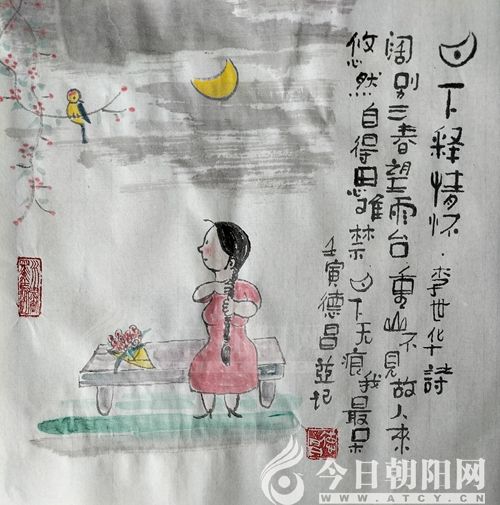 月下释情怀·李世华詩
阔别三春望雨台重山不见故人来
悠然自得思难禁月下无痕我最呆
壬寅德昌並记
今日朝阳网
WWW.ATCY.CN